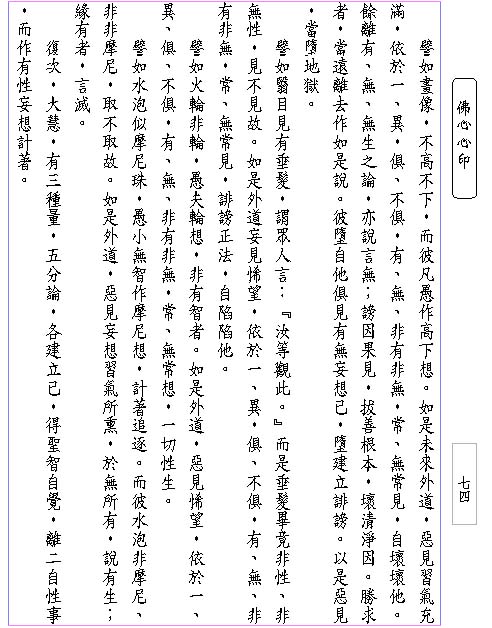 佛心心印
七四
譬如畫像，不高不下，而彼凡愚作高下想。如是未來外道，惡見習氣充
滿，依於一、異，俱、不俱，有、無、非有非無，常、無常見，自壞壞他。
餘離有、無、無生之論，亦說言無；謗因果見，拔善根本，壞清淨因。勝求
者，當遠離去作如是說。彼墮自他俱見有無妄想已，墮建立誹謗。以是惡見
，當墮地獄。
譬如翳目見有垂髮，謂眾人言：『汝等觀此。』而是垂髮畢竟非性、非
無性，見不見故。如是外道妄見悕望，依於一、異，俱、不俱，有、無、非
有非無，常、無常見，誹謗正法，自陷陷他。
譬如火輪非輪，愚夫輪想，非有智者。如是外道，惡見悕望，依於一、
異、俱、不俱，有、無、非有非無，常、無常想，一切性生。
譬如水泡似摩尼珠，愚小無智作摩尼想，計著追逐。而彼水泡非摩尼、
非非摩尼，取不取故。如是外道，惡見妄想習氣所熏，於無所有，說有生；
緣有者，言滅。
復次，大慧，有三種量，五分論，各建立已，得聖智自覺，離二自性事
，而作有性妄想計著。